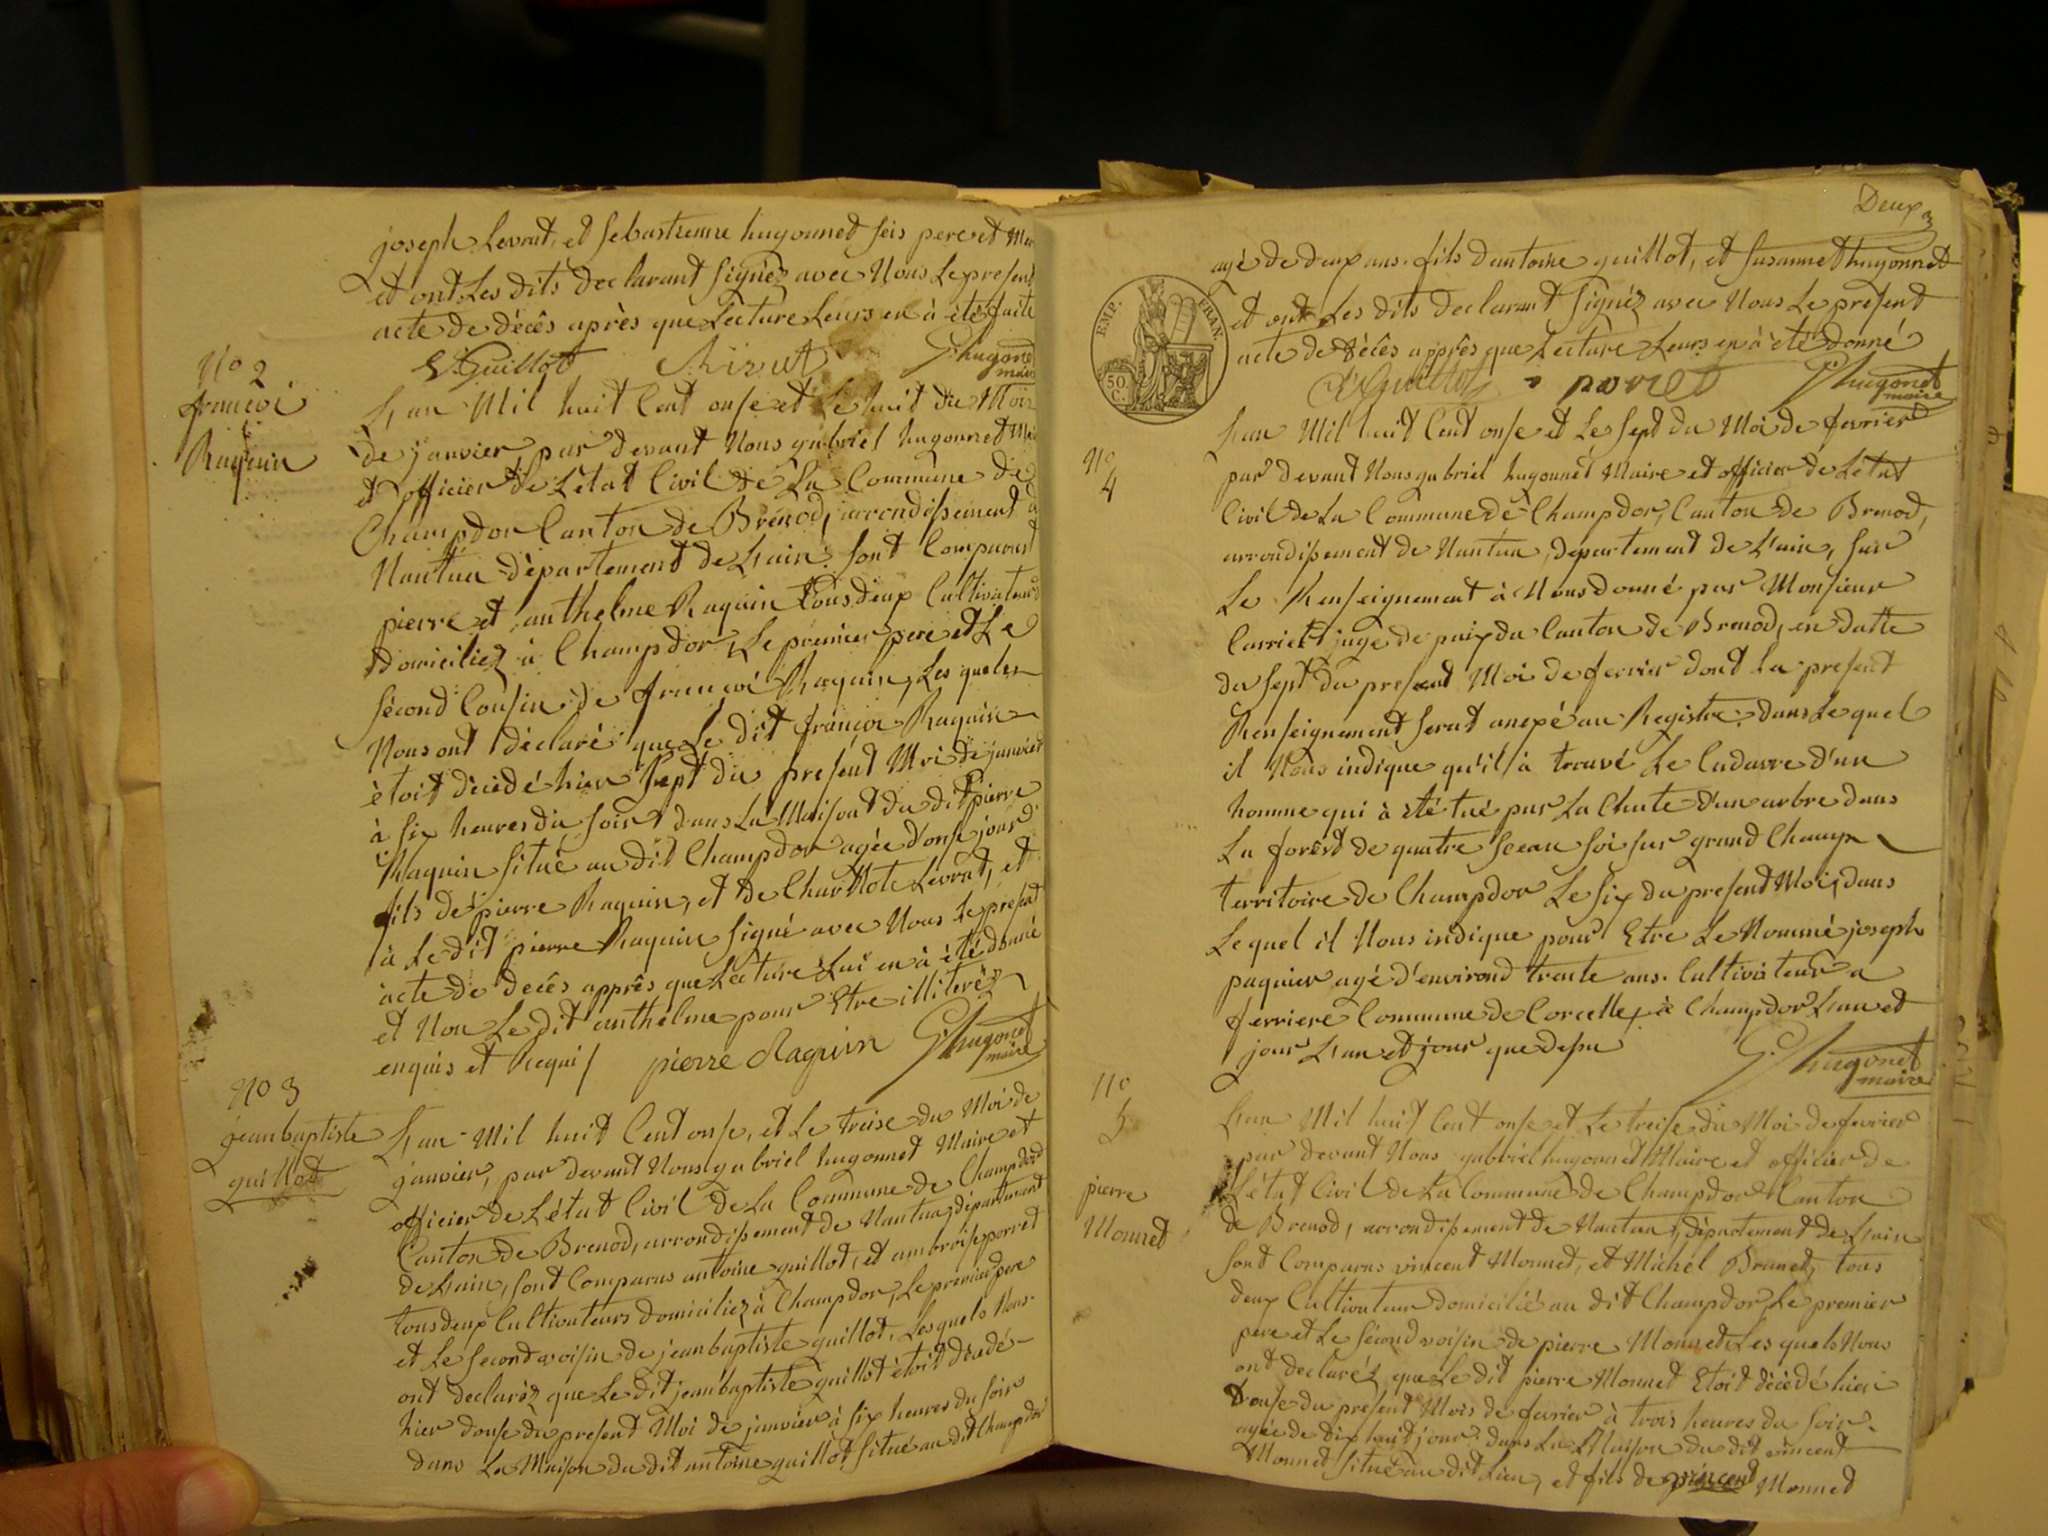 joseph Levrat, et Sebastienne hugonnet ses pere et Mere
et ont Les dits declarant signéz avec Nous Le present
acte de décês après que Lecture Leurs en à été faite
Guillot Rivat G. hugonet maire
No 2
françoi
Raquin
L'an Mil huit Cent onse et Le huit du Mois
de janvier par devant Nous gabriel hugonnet Maire
et officier de L'état Civil de La Commune de
Champdor Canton de Brenod, arrondissement de
Nantua département de L'ain, sont Comparus
pierre et anthelme Raquin tous deux Cultivateurs
domiciliez à Champdor, Le premier pere et Le
second Cousin de françoi Raquin, Les quels
Nous ont déclaré que Le dit françoi Raquin
ètoit dècèdé hier sept du present Moi de janvier
à six heures du soir dans La Maison du dit pierre
Raquin situé au dit Champdor agée d'onse jour
fils de pierre Raquin, et de Charllote Levrat, et
à Le dit pierre Raquin signé avec Nous Le present
acte de decês apprês que Lecture Lui en à été donné
et Non Le dit anthelme pour Etre illiteréz
enquis et Requis pierre Raquin G. hugonet maire
No 3
jean baptiste
guillot
L'an Mil huit Cent onse, et Le treise du Moi de
janvier, par devant Nous gabriel hugonnet Maire et
officier de L'état Civil de La Commune de Champdor
Canton de Brenod, arrondissement de Nantua, département
de L'ain, sont Comparus antoine guillot, et ambroise porret
tous deux Cultivateurs domiciliez à Champdor, Le premier pere
et Le second voisin de jean baptiste guillot, Les quels Nous
ont declaréz que Le dit jean baptiste guillot ètoit dècèdé
hier douse du present Moi de janvier à six heures du soir
dans La Maison du dit antoine guillot situé au dit Champdor
Deux
agé de deux ans. fils d'antoine guillot, et Susanne hugonnet
et ont Les dits declarant signéz avec Nous Le present
acte de dècês apprês que Lecture Leurs en à été donné
EMP. FRAN.
50 C.
Guillot porret G. hugonet maire
No
4
L'an Mil huit Cent onse et Le sept du Moi de fevrier
par devant Nous gabriel hugonnet Maire et officier de L'état
Civil de La Commune de Champdor, Canton de Brenod,
arrondissement de Nantua, departement de L'ain, sur
Le Renseignement à Nous donné par Monsieur
Carrier juge de paix du Canton de Brenod, en datte
du sept du present Moi de fevrier dont La present
Renseignement serat anexé au Registre, dans Le quel
il Nous indique qu'il à trouvé Le Cadavre d'un
homme qui à été tué par La Chute d'un arbre dans
La forêt de quatre sur grand Champ
territoire de Champdor Le six du present Moi, dans
Le quel il Nous indique pour Etre Le Nommé joseph
paquier agé d'environd trente ans. Cultivateur a
ferriere Commune de Corcelle, à Champdor L'an et
jour L'an et jour que dessu G. hugonet maire
No
5
pierre
Monnet
L'an Mil huit Cent onse et Le treise du Moi de fevrier
par devant Nous gabriel hugonnet Maire et officier de
L'état Civil de La Commune de Champdor Canton
de Brenod, arrondissement de Nantua, département de L'ain
sont Comparus vincent Monnet, et Michel Brunet, tous
deux Cultivateur domicilié au dit Champdor, Le premier
pere et Le sècond voisin de pierre Monnet, Les quels Nous
ont declaréz que Le dit pierre Monnet Etoit dècèdé hier
douse du present Mois de fevrier à trois heures du soir
agée de dix huit jour dans La Maison du dit vincent
Monnet situé au dit Lieu, et fils de vincent Monnet